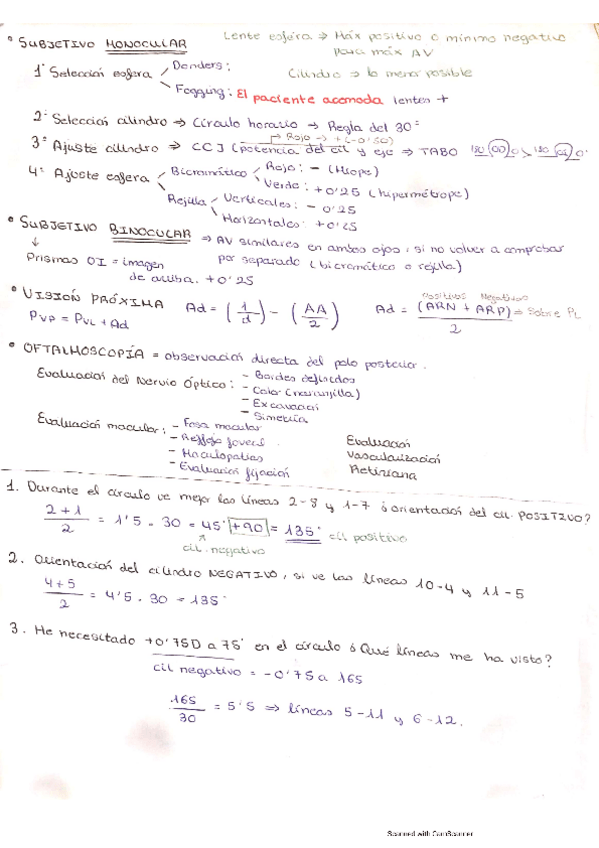 • SUBJETIVO MONOCULAR
Lente esfera ⇒ Máx positivo o mínimo negativo
para máx AV
1º Selección esfera
Donders:
Cilindro ⇒ lo menor posible
Fogging: El paciente acomoda lentes +
2º Selección cilindro ⇒ Círculo horario → Regla del 30º
Rojo → +(-0'50)
3º Ajuste cilindro ⇒ CCJ (potencia del cil y eje ⇒ TABO
4º Ajuste esfera
Bicromático
Rojo: - (Miope)
Verde: +0'25 (hipermétrope)
Rejilla
Verticales: - 0'25
Horizontales: +0'25
• SUBJETIVO BINOCULAR ⇒ AV similares en ambos ojos, si no volver a comprobar
por separado (bicromático o rejilla)
Prismas OI = imagen
de arriba. +0'25
• VISIÓN PRÓXIMA Ad = (1/d) - (AA/2)
Positivos Negativos
Ad = (ARN + ARP)/2 ⇒ Sobre PL
PVP = PVL + Ad
• OFTALMOSCOPÍA = observación directa del polo posterior.
Evaluación del Nervio Óptico: - Bordes definidos
- Color (naranjilla)
- Excavación
- Simetría
Evaluación macular: - Fosa macular
- Reflejo foveal
- Maculopatías
- Evaluación fijación
Evaluación
Vascularización
Retiniana
1. Durante el círculo ve mejor las líneas 2-8 y 1-7 ¿orientación del cil. POSITIVO?
2+1/2 = 1'5 · 30 = 45º +90 = 135º cil positivo
cil. negativo
2. Orientación del cilindro NEGATIVO, si ve las líneas 10-4 y 11-5
4+5/2 = 4'5 · 30 = 135º
3. He necesitado +0'75D a 75º en el círculo ¿Qué líneas me ha visto?
cil negativo = -0'75 a 165
165/30 = 5'5 ⇒ líneas 5-11 y 6-12.
Scanned with CamScanner